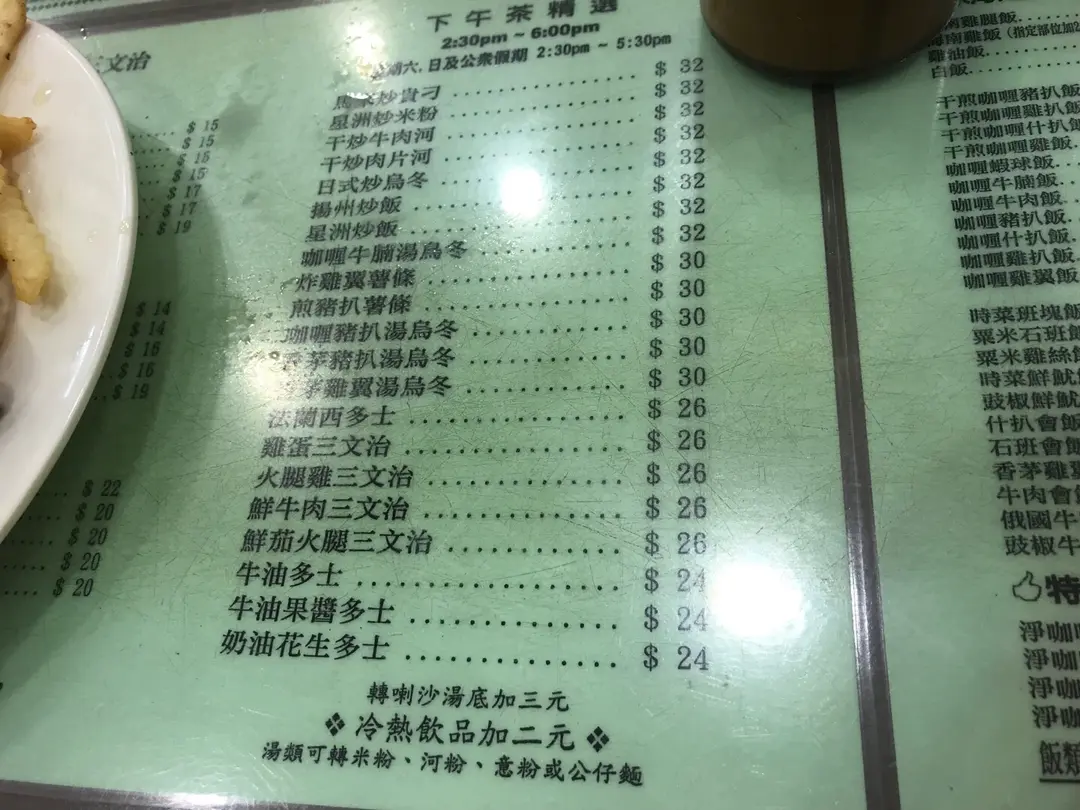 三文治
$ 15
$ 15
$ 15
$ 15
$ 17
$ 17
$ 19
$ 14
$ 14
$ 16
$ 16
$ 19
$ 22
$ 20
$ 20
$ 20
$ 20
下午茶精選
2:30pm ~ 6:00pm
星期六.日及公衆假期 2:30pm ~ 5:30pm
馬來炒貴刁 $ 32
星洲炒米粉 $ 32
干炒牛肉河 $ 32
干炒肉片河 $ 32
日式炒烏冬 $ 32
揚州炒飯 $ 32
星洲炒飯 $ 32
咖喱牛腩湯烏冬 $ 32
炸雞翼薯條 $ 30
煎豬扒薯條 $ 30
咖喱豬扒湯烏冬 $ 30
香茅豬扒湯烏冬 $ 30
香茅雞翼湯烏冬 $ 30
法蘭西多士 $ 26
雞蛋三文治 $ 26
火腿雞三文治 $ 26
鮮牛肉三文治 $ 26
鮮茄火腿三文治 $ 26
牛油多士 $ 24
牛油果醬多士 $ 24
奶油花生多士 $ 24
轉喇沙湯底加三元
❖ 冷熱飲品加二元 ❖
湯類可轉米粉、河粉、意粉或公仔麵
海南雞腿飯
海南雞飯 (指定部位加2
雞油飯
白飯
干煎咖喱豬扒飯
干煎咖喱雞扒飯
干煎咖喱什扒飯
干煎咖喱雞飯
咖喱蝦球飯
咖喱牛腩飯
咖喱牛肉飯
咖喱豬扒飯
咖喱什扒飯
咖喱雞扒飯
咖喱雞翼飯
時菜班塊飯
粟米石班飯
粟米雞絲飯
時菜鮮魷
豉椒鮮魷
什扒會飯
石班會飯
香茅雞翼
牛肉會飯
俄國牛
豉椒牛
特
淨咖
淨咖
淨咖
淨咖
飯類